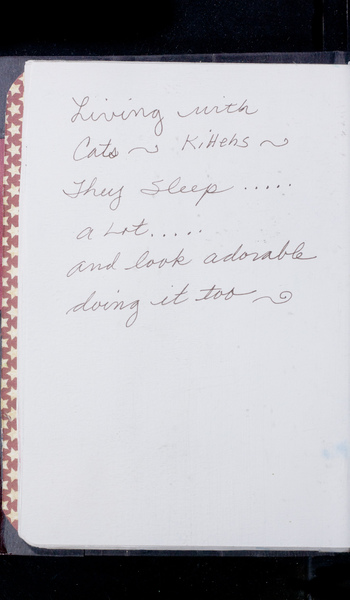 Living with
Cats ~ Kittens ~
They Sleep .....
a Lot.....
and look adorable
doing it too ~